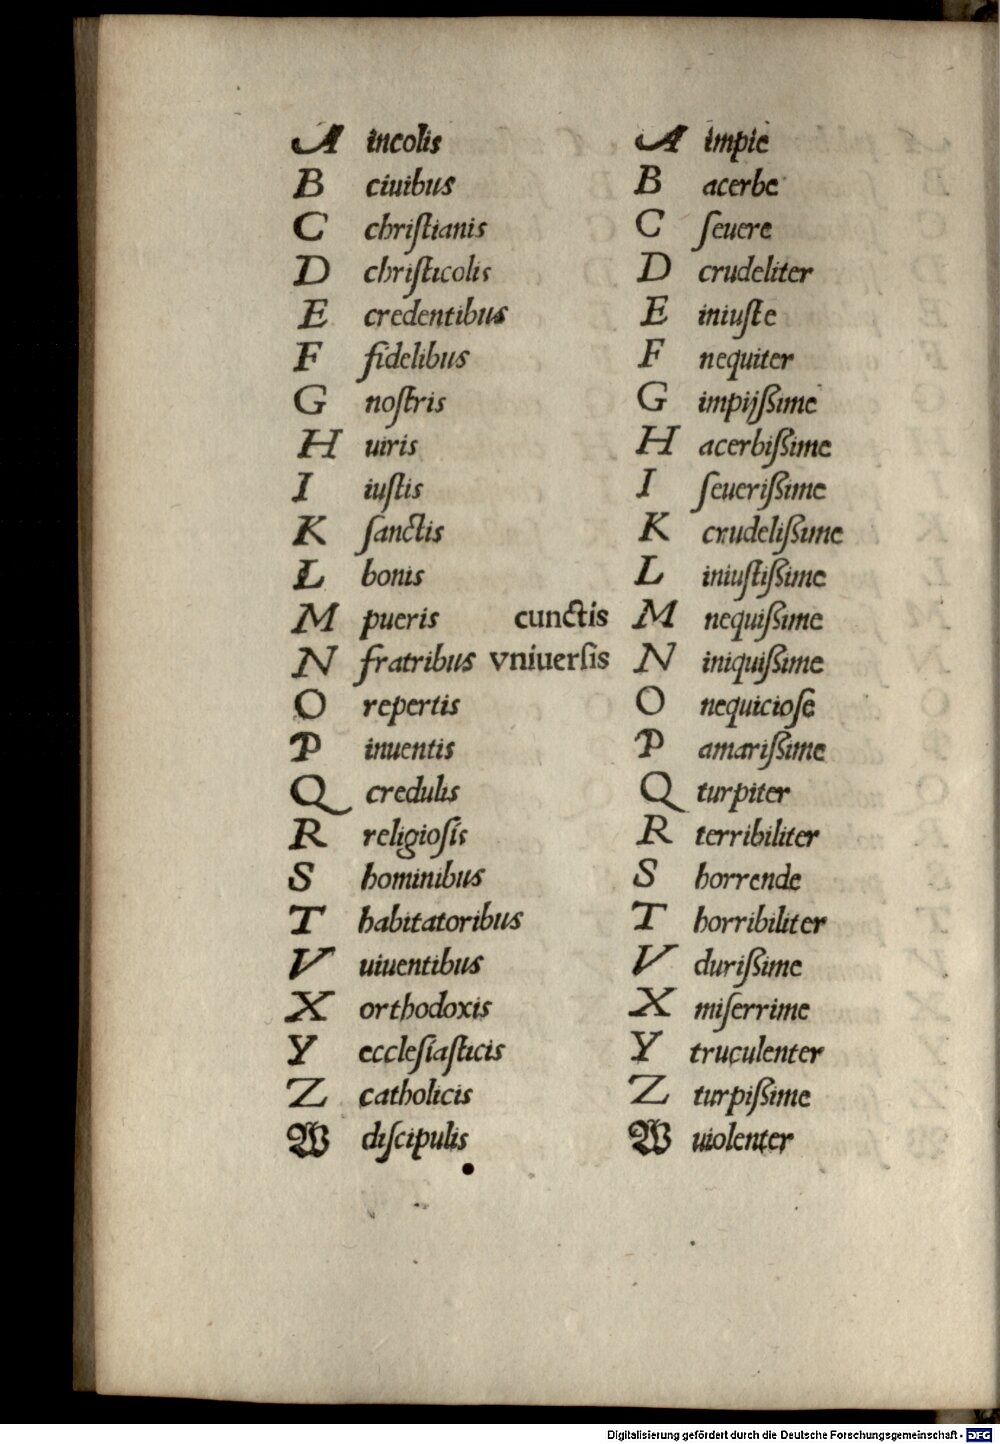 A incolis A impie
B ciuibus B acerbe
C chriſtianis C ſeuere
D chriſticolis D crudeliter
E credentibus E iniuſte
F fidelibus F nequiter
G noſtris G impijſsime
H uiris H acerbiſsime
I iuſtis I ſeueriſsime
K ſanctis K crudeliſsime
L bonis L iniuſtiſsime
M pueris cunctis M nequiſsime
N fratribus vniuerſis N iniquiſsime
O repertis O nequicioſe
P inuentis P amariſsime
Q credulis Q turpiter
R religioſis R terribiliter
S hominibus S horrende
T habitatoribus T horribiliter
V uiuentibus V duriſsime
X orthodoxis X miſerrime
Y eccleſiaſticis Y truculenter
Z catholicis Z turpiſsime
W diſcipulis W uiolenter
Digitalisierung gefördert durch die Deutsche Forschungsgemeinschaft - DFG